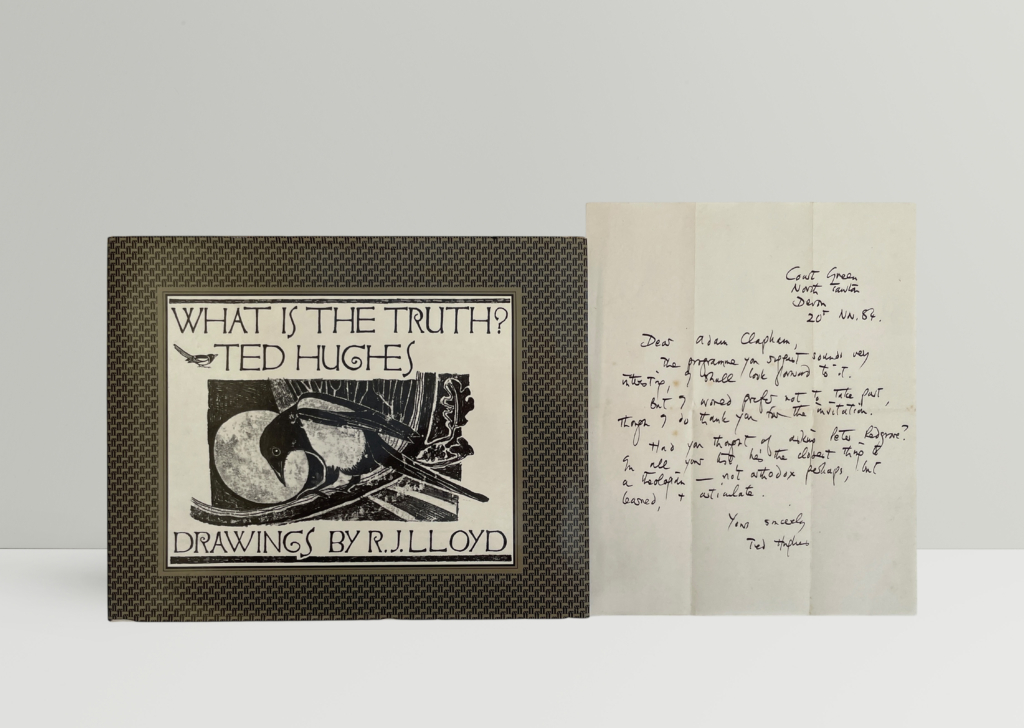 WHAT IS THE TRUTH?
TED HUGHES
DRAWINGS BY R.J.LLOYD
Court Green
North Tawton
Devon
20th Nov. 84.
Dear Adam Clapham,
The programme you suggest sounds very
interesting, I shall look forward to it.
But I would prefer not to take part,
though I do thank you for the invitation.
Had you thought of asking Peter Redgrove?
In all your list he's the closest thing to
a theologian — not orthodox perhaps, but
learned, + articulate.
Yours sincerely
Ted Hughes